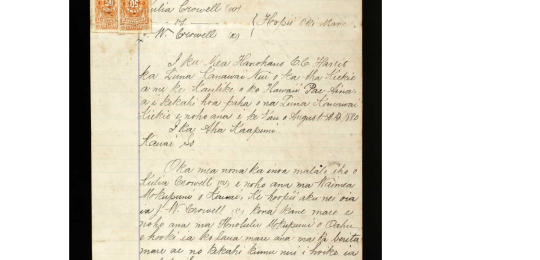 50 50
Julia Crowell (w)
vs } Hoopii Oki Mare
W. Crowell (k)
I ka Mea Hanohano C. C. Harris
ka Luna Kanawai Nui o ka Aha Kiekie
a me ke Kaulike o ko Hawaii Pae Aina
a i kekahi hoa paha o na Luna Kanawai
Kiekie e noho ana i ke Kau o August A.D. 1880
I ka Aha Kaapuni
Kauai ss
O ka mea nona ka inoa malalo iho o
Julia Crowell (w) e noho ana ma Waimea
Mokupuni o Kauai, ke hoopii aku nei oia
ia W. Crowell (k) kana kane mare e
noho ana ma Honolulu Mokupuni o Oahu
e hooki ia ko laua mare ana ma ka berita
mare ae no kekahi kumu nui i hoike ia